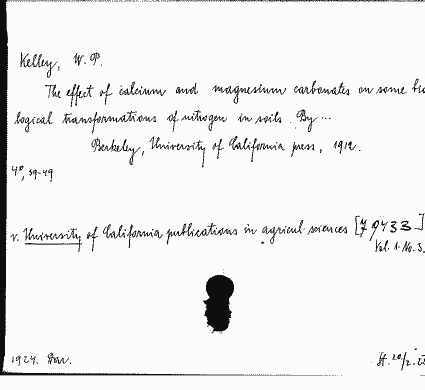 Kelley, W. P.
The effect of calcium and magnesium carbonates on some bio
logical transformations of nitrogen in soils. By ...
Berkeley, University of California press, 1912.
4°, 39-49
v. University of California publications in agricul. sciences [79433]
Vol. 1. No. 3.
1924. Dar.